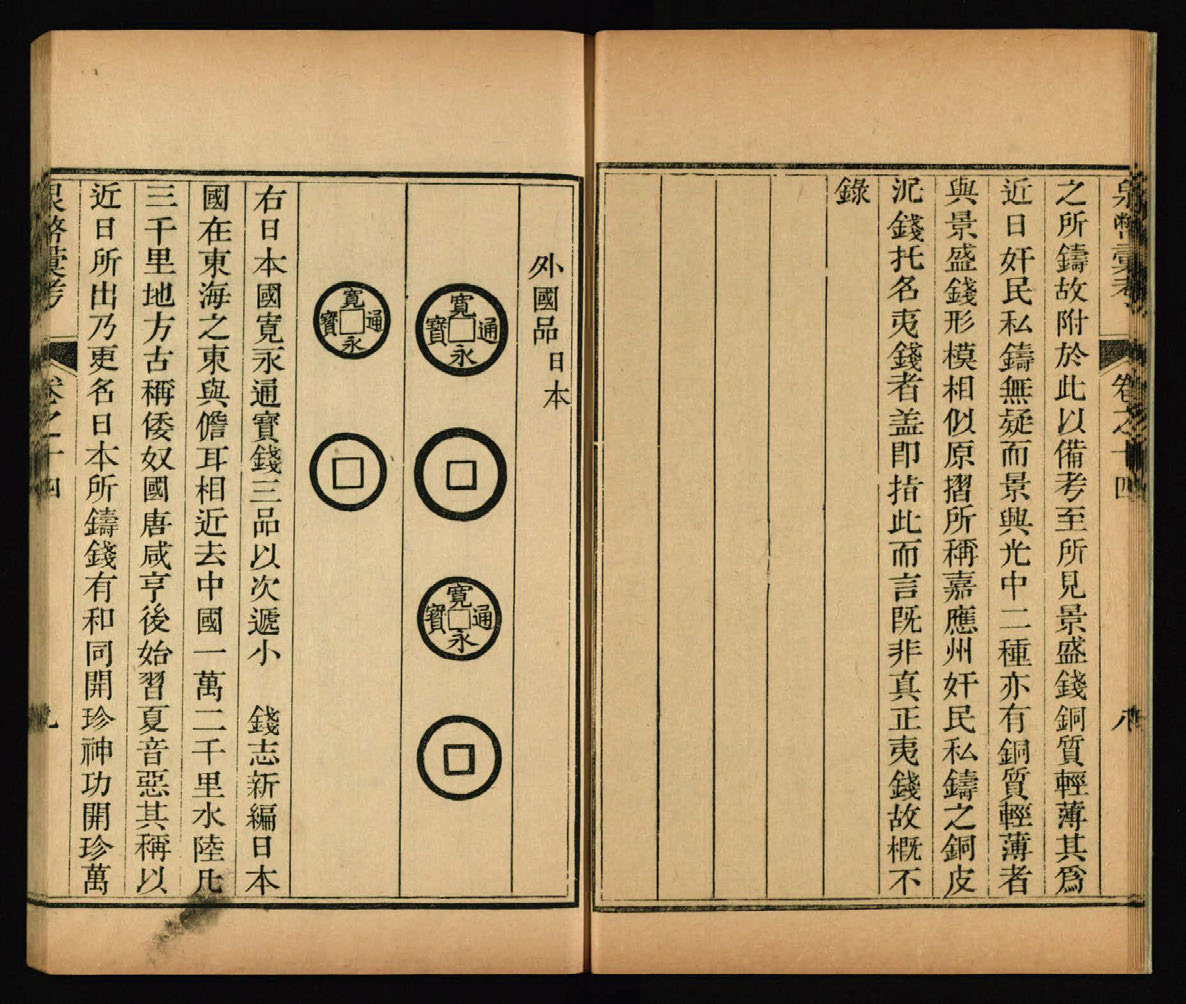 泉幣彙考 卷之十四 八
之所鑄故附於此以備考至所見景盛錢銅質輕薄其爲
近日奸民私鑄無疑而景興光中二種亦有銅質輕薄者
與景盛錢形模相似原摺所稱嘉應州奸民私鑄之銅皮
泥錢托名夷錢者盖即指此而言既非真正夷錢故概不
錄
外國品 日本
寬永通寶
寬永通寶
寬永通寶
右日本國寬永通寶錢三品以次遞小 錢志新編日本
國在東海之東與儋耳相近去中國一萬二千里水陸凡
三千里地方古稱倭奴國唐咸亨後始習夏音惡其稱以
近日所出乃更名日本所鑄錢有和同開珍神功開珍萬
泉幣彙考 卷之十四 九